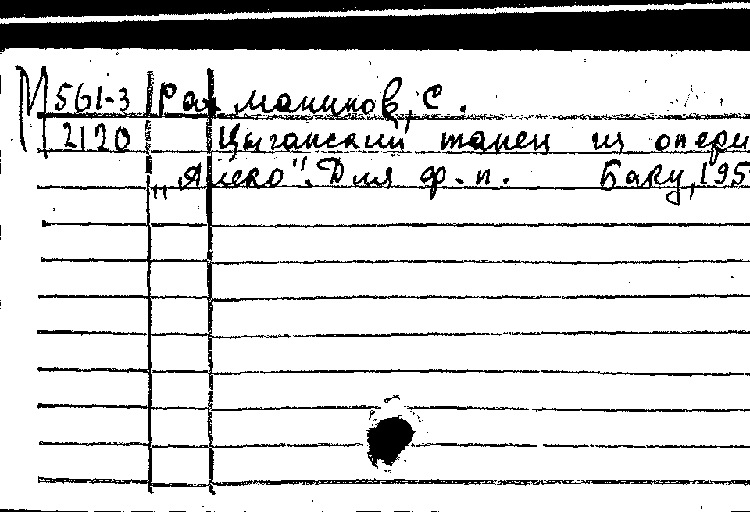 М 561-3 Рахманинов, С.
2120 Цыганский танец из оперы
„Алеко". Для ф.-п. Баку, 195